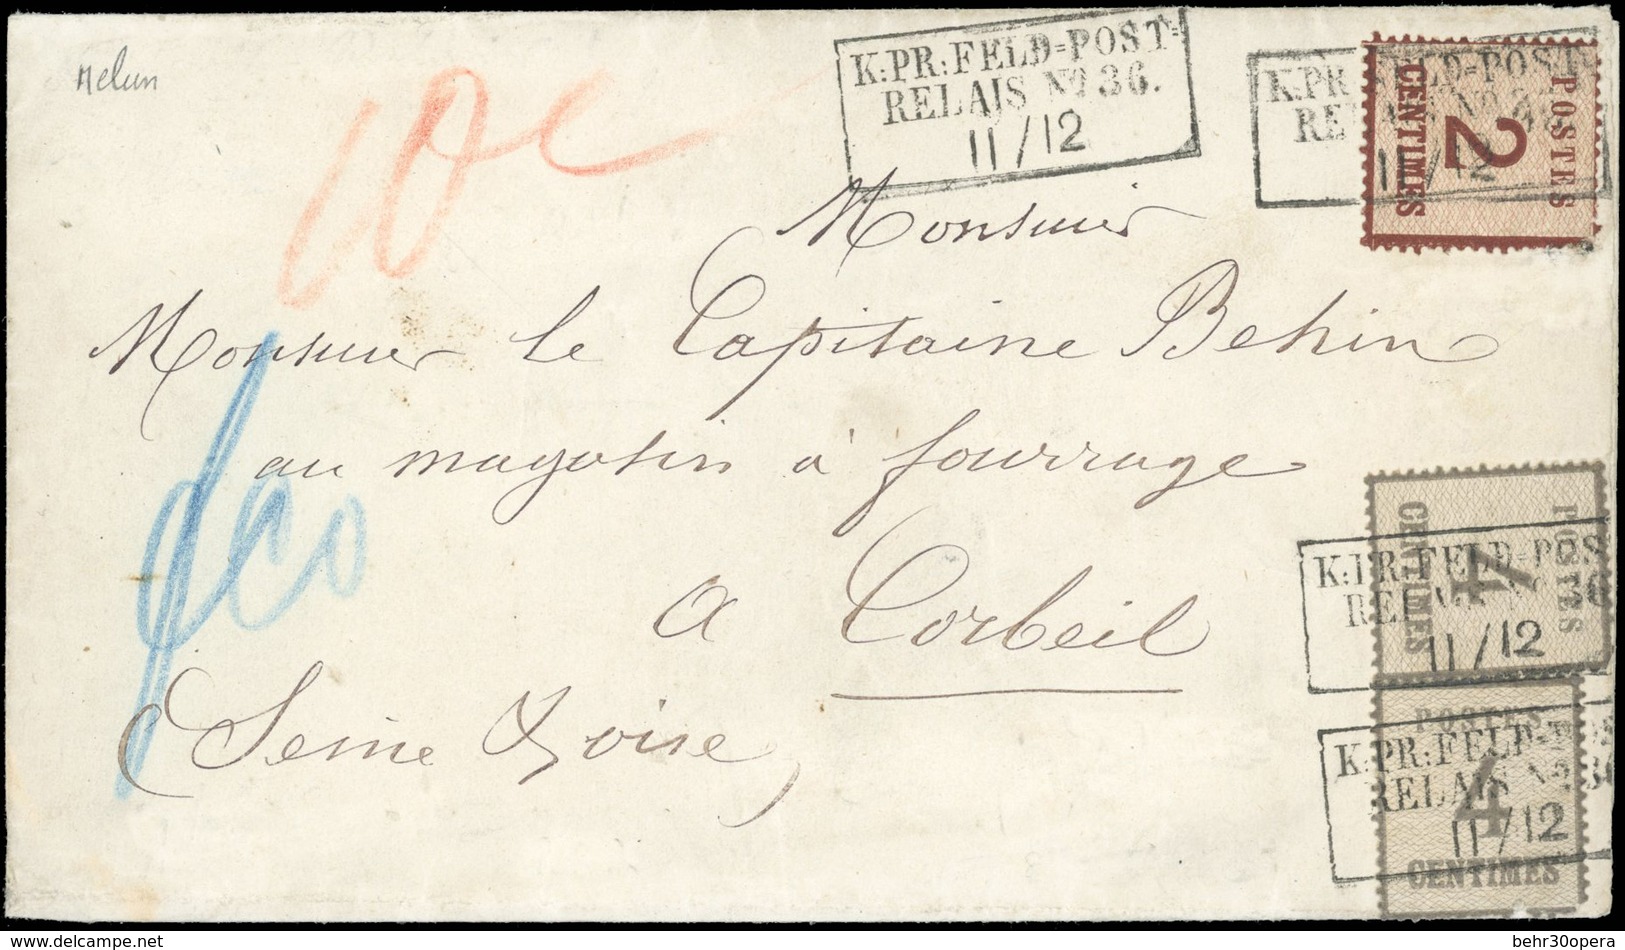 Melun
10c
K:PR:FELD=POST=
RELAIS No. 36.
11/12
K:PR:FELD=POST=
RELAIS No. 36
11/12
POSTES
2
CENTIMES
Monsieur
Monsieur le Capitaine Behin
au magasin à fourrage
a Corbeil
(Seine & oise)
POSTES
4
CENTIMES
K:PR:FELD=POS
RELAIS No. 36
11/12
POSTES
4
CENTIMES
K:PR:FELD=P
RELAIS No. 36
11/12
behr30opera